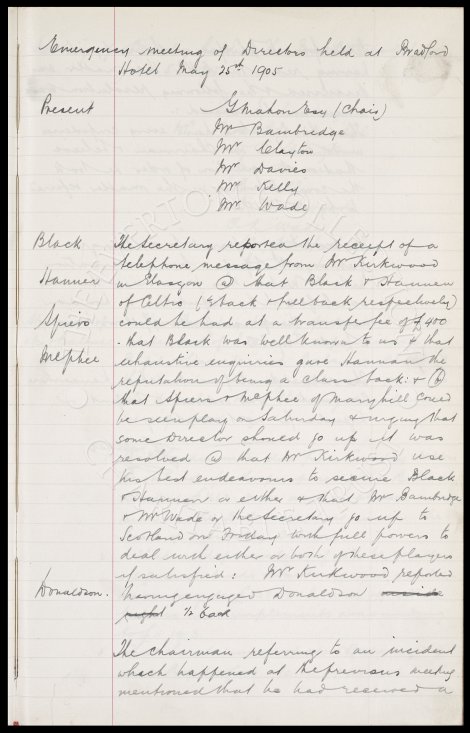 Emergency meeting of Directors held at Bradford
Hotel May 25th 1905
Present G Mahon Esq (Chair)
Mr Bambridge
Mr Clayton
Mr Davies
Mr Kelly
Mr Wade
Black The Secretary reported the receipt of a
telephone message from Mr Kirkwood
Hannen in Glasgow @ that Black & Hannen
of Celtic ( back & full back respectively)
Spiers could be had at a transfer fee of £400
- that Black was well known to us & that
McPhee exhaustive enquiries gave Hannan the
reputation of being a class back: & (b)
that Spiers & McPhee of Maryhill could
be seen play on Saturday & urging that
some Director should go up it was
resolved @ that Mr Kirkwood use
his best endeavours to secure Black
& Hannen or either & that Mr Bambridge
& Mr Wade or the Secretary go up to
Scotland on Friday with full powers to
deal with either or both of these players
if satisfied: Mr Kirkwood reported
Donaldson. having engaged Donaldson inside
right ½ back
The Chairman referring to an incident
which happened at the previous meeting
mentioned that he had received a